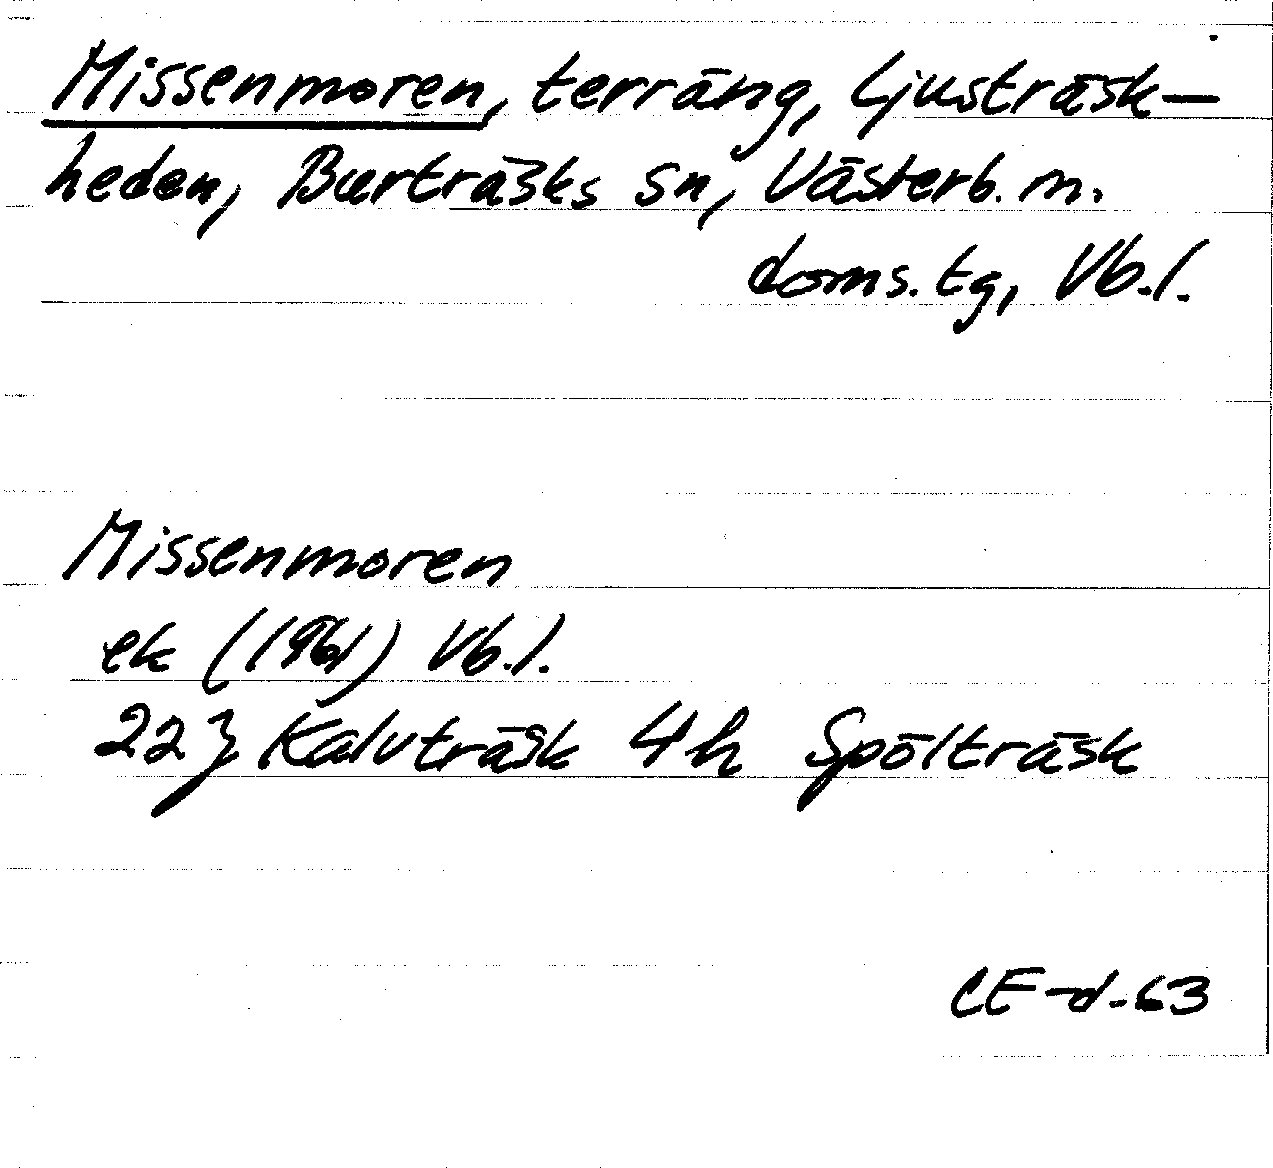 Missenmoren, terräng, Ljusträsk-
heden, Burträsks sn, Västerb. m.
doms. tg, Vb. l.
Missenmoren
ek (1961) Vb. l.
22J Kalvträsk 4h Spölträsk
CE-d-63